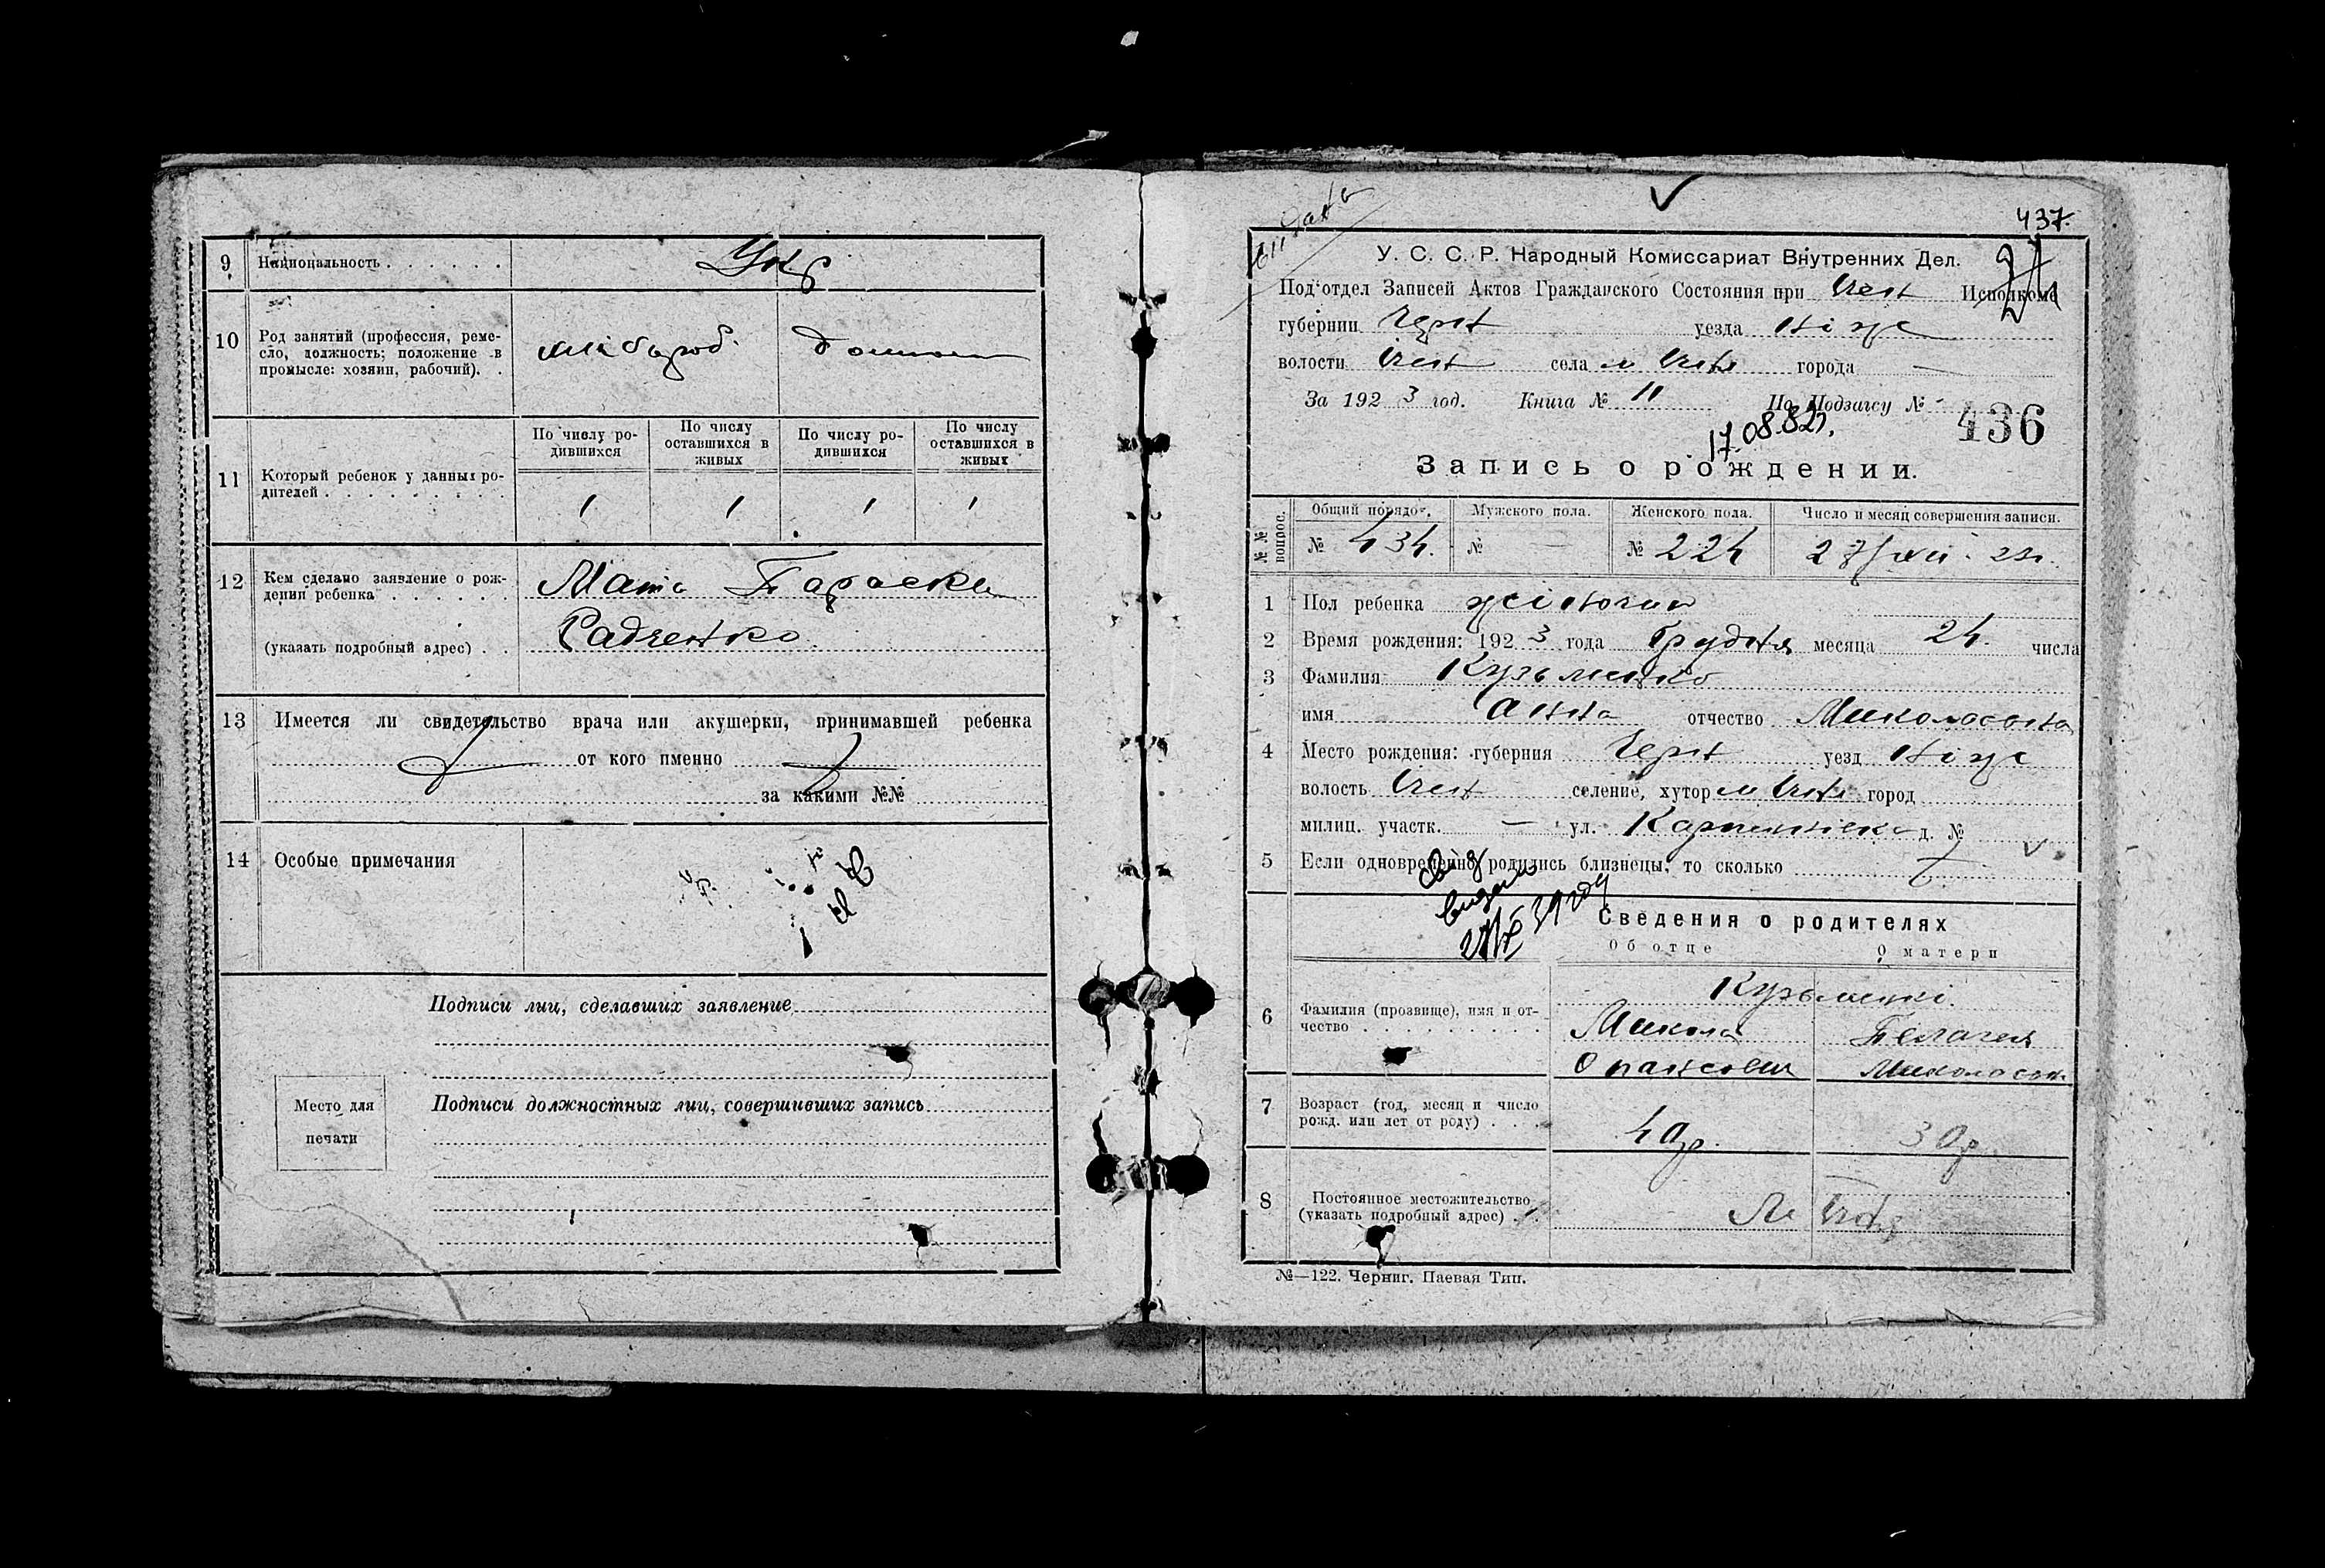 9 Национальность . . . . . . Укр
10 Род занятий (профессия, реме-
сло, должность; положение в
промысле: хозяин, рабочий). . хлібороб. домаш
11 Который ребенок у данных ро-
дителей . . . . . . . . .
По числу ро-
дившихся
По числу
оставшихся в
живых
По числу ро-
дившихся
По числу
оставшихся в
живых
1 1 1 1
12 Кем сделано заявление о рож-
дении ребенка . . . . . . Мати Параска
(указать подробный адрес) . . Радченко
13 Имеется ли свидетельство врача или акушерки, принимавшей ребенка
от кого именно
за какими №№
14 Особые примечания
Подписи лиц, сделавших заявление
Место для
печати
Подписи должностных лиц, совершивших запись
437.
У. С. С. Р. Народный Комиссариат Внутренних Дел.
Под'отдел Записей Актов Гражданского Состояния при Исполкоме
губернии Черн уезда Ніж
волости села м города —
За 1923 год. Книга № 11 По Подзагсу № 436
17.08.82г.
Запись о рождении.
№№ вопрос.
Общий порядо., Мужского пола. Женского пола. Число и месяц совершения записи.
№ 434. № — № 224 27/XII
1 Пол ребенка жіночий
2 Время рождения: 1923 года Грудня месяца 24. числа
3 Фамилия Кузьменко
имя Анна отчество Миколаєвна
4 Место рождения: губерния Черн уезд Ніж
волость селение, хутор м город
милиц. участк. — ул. д. №
5 Если одновременно родились близнецы, то сколько
видано
39 году
Сведения о родителях
Об отце О матери
6 Фамилия (прозвище), имя и от-
чество . . . . . . . . .
Кузьменкі.
Микола Пелагея
Опанасович Миколаєвн.
7 Возраст (год, месяц и число
рожд. или лет от роду) . . . 40р. 30р
8 Постоянное местожительство
(указать подробный адрес) . . м
№—122. Черниг. Паевая Тип.